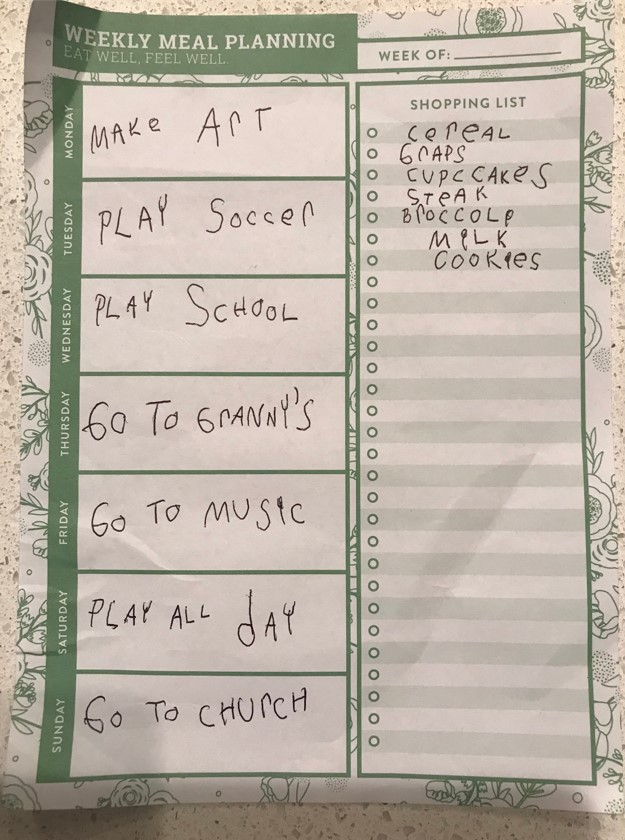 WEEKLY MEAL PLANNING
EAT WELL, FEEL WELL.
WEEK OF:
MONDAY
MAKe ArT
TUESDAY
PLAY Soccer
WEDNESDAY
PLAY SCHOOL
THURSDAY
GO TO GrANNY'S
FRIDAY
GO TO MUSic
SATURDAY
PLAY ALL dAY
SUNDAY
GO TO CHUrCH
SHOPPING LIST
CereAL
GrAPS
CUPCCAKeS
STeAK
BrOCCOLe
MiLK
COOKieS